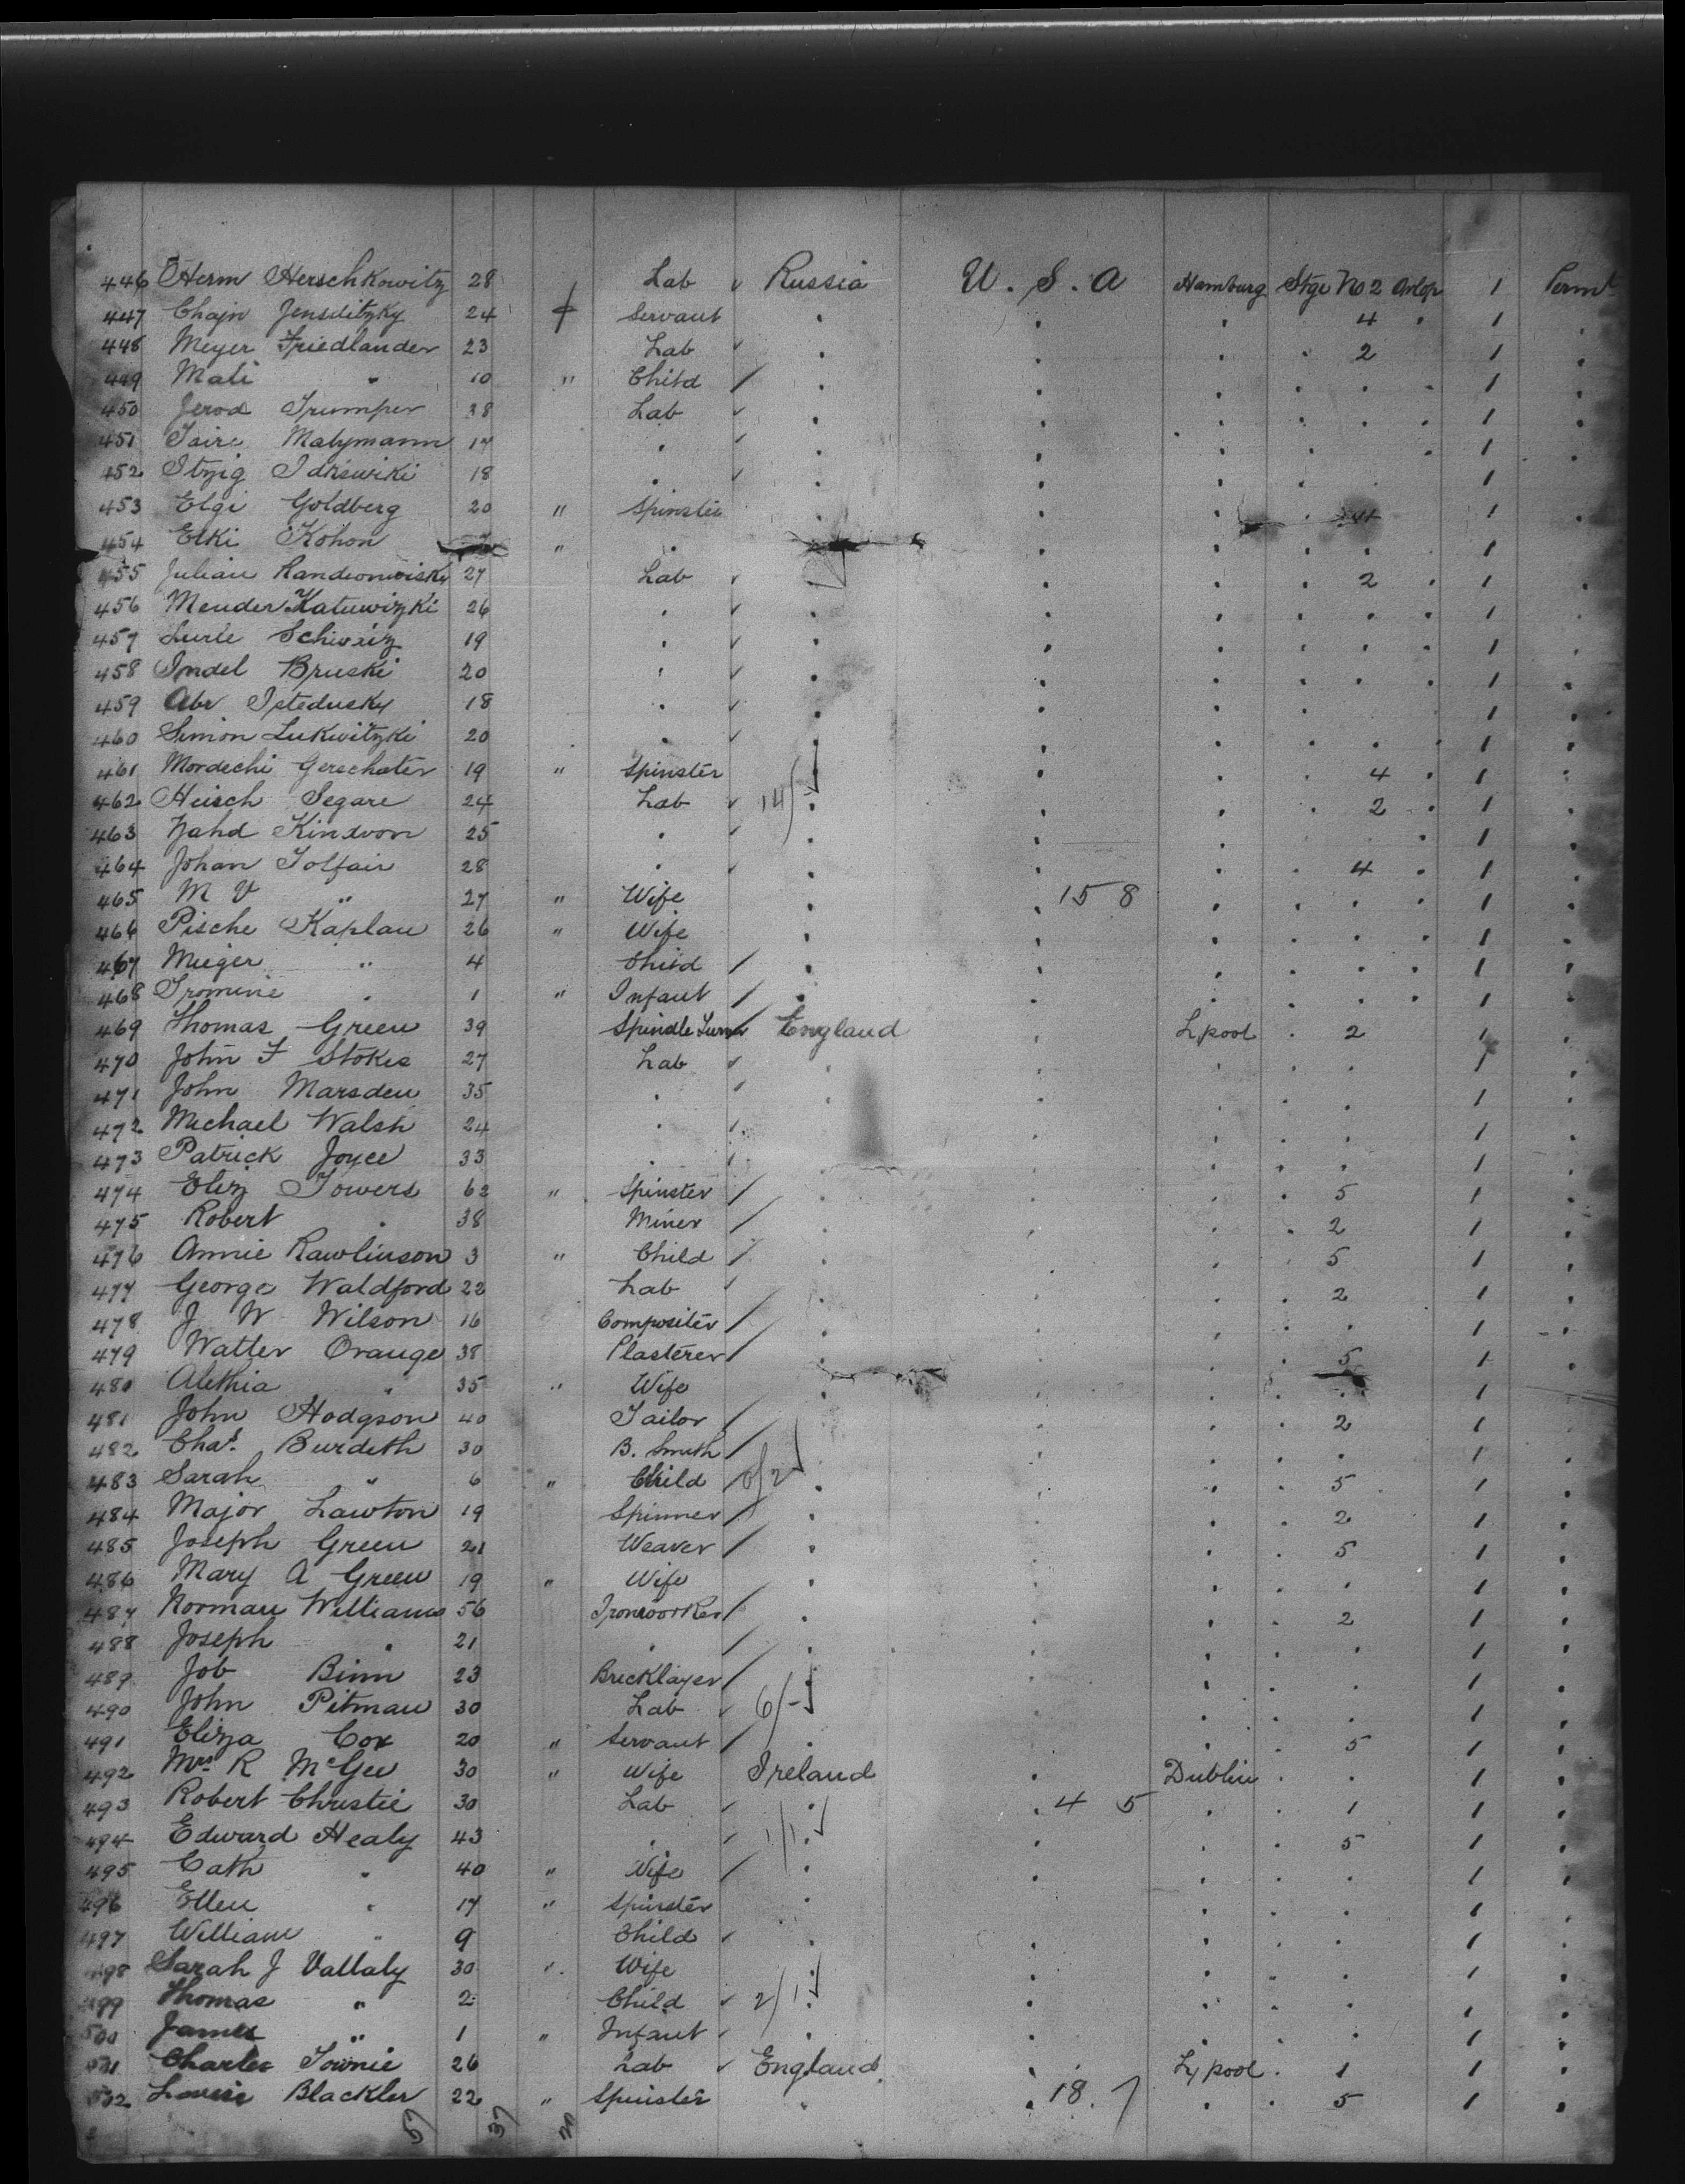 446 Herm Herschkowitz 28 Lab Russia U. S. A Hamburg Stge No 2 1 Permt
447 Chajn Jensditzky 24 Servant . . . 4 . 1 .
448 Meyer Friedlander 23 Lab . . . . 2 1 .
449 Mali " 10 " Child . . . . . . 1 .
450 Jerod Trumper 38 Lab . . . . . . 1 .
451 Taire Malymann 17 . . . . . . 1 .
452 Itzig Idrswiki 18 . . . . . . 1
453 Elgi Goldberg 20 " Spinster . . . . 4 1 .
454 Elki Kohon " . . . . . 1
455 Julian 27 Lab . . . . 2 . 1 .
456 Mender Katuwizki 26 . . . . . . . 1 .
457 Lurle Schwaiz 19 . . . . . . . 1 .
458 Indel Bruski 20 . . . . . . . 1 .
459 Abr Istedusky 18 . . . . . . 1 .
460 Simon Lukwitzki 20 . . . . . . . 1 .
461 Mordechi Gerschater 19 " Spinster . . . 4 . 1 .
462 Heisch Segare 24 Lab 14 . . . . 2 . 1 .
463 Kindvon 25 . . . . . 1 .
464 Johan Tolfair 28 . . . . . 4 . 1 .
465 M V " 27 " Wife . . 15 8 . . . . 1 .
466 Pische Kaplan 26 " Wife . . . . . . 1 .
467 Mieger " 4 Child . . . . . . 1 .
468 Tromine . 1 " Infant . . . . . . 1 .
469 Thomas Green 39 Spindle Turner England . L pool . 2 1 .
470 John F Stokes 27 Lab . . . . . 1 .
471 John Marsden 35 . . . . . . 1 .
472 Michael Walsh 24 . . . . . 1 .
473 Patrick Joyce 33 . . . . . . 1 .
474 Eliz Towers 62 " Spinster . . . . 5 1 .
475 Robert . 38 Miner . . . . 2 1 .
476 Annie Rawlinson 3 " Child . . . . 5 1 .
477 George Waldford 22 Lab . . . . 2 1 .
478 J W Wilson 16 Compositer . . . . . 1 .
479 Walter Orange 38 Plasterer . . . . 5 1 .
480 Alethia . 35 " Wife . . . . . 1 .
481 John Hodgson 40 Tailor . . . . 2 1 .
482 Chas. Burdeth 30 B. Smith . . . . 1 .
483 Sarah " 6 " Child 8/2 . . . . 5 1 .
484 Major Lawton 19 Spinner . . . . 2 1 .
485 Joseph Green 21 Weaver . . . . 5 1 .
486 Mary A Green 19 " Wife . . . . . 1 .
487 Norman Williams 56 Ironworker . . . . 2 1 .
488 Joseph . 21 . . . . . . 1 .
489 Job Binn 23 Bricklayer . . . . . 1 .
490 John Pitman 30 Lab 6/- . . . . 1 .
491 Eliza Cox 20 " Servant . . . . 5 1 .
492 Mrs R McGee 30 " Wife Ireland . Dublin . . 1 .
493 Robert Christie 30 Lab . . 4 5 . . 1 1 .
494 Edward Healy 43 . 1/1 . . . . 5 1 .
495 Cath . 40 " Wife . . . . . 1 .
496 Ellen . 17 " Spinster . . . . 1 .
497 William " 9 Child . . . . . 1 .
498 Sarah J Vallaly 30 " Wife . . . . . 1 .
499 Thomas " 2 Child 2/1 . . . . . 1 .
500 James " 1 " Infant . . . . . 1 .
501 Charles Townie 26 Lab England . L pool . 1 1 .
502 Louise Blackler 22 " Spinster . . 18 7 . . 5 1 .
57 37 20